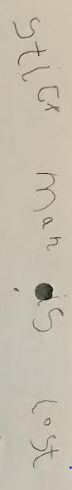 Stilex man is lost